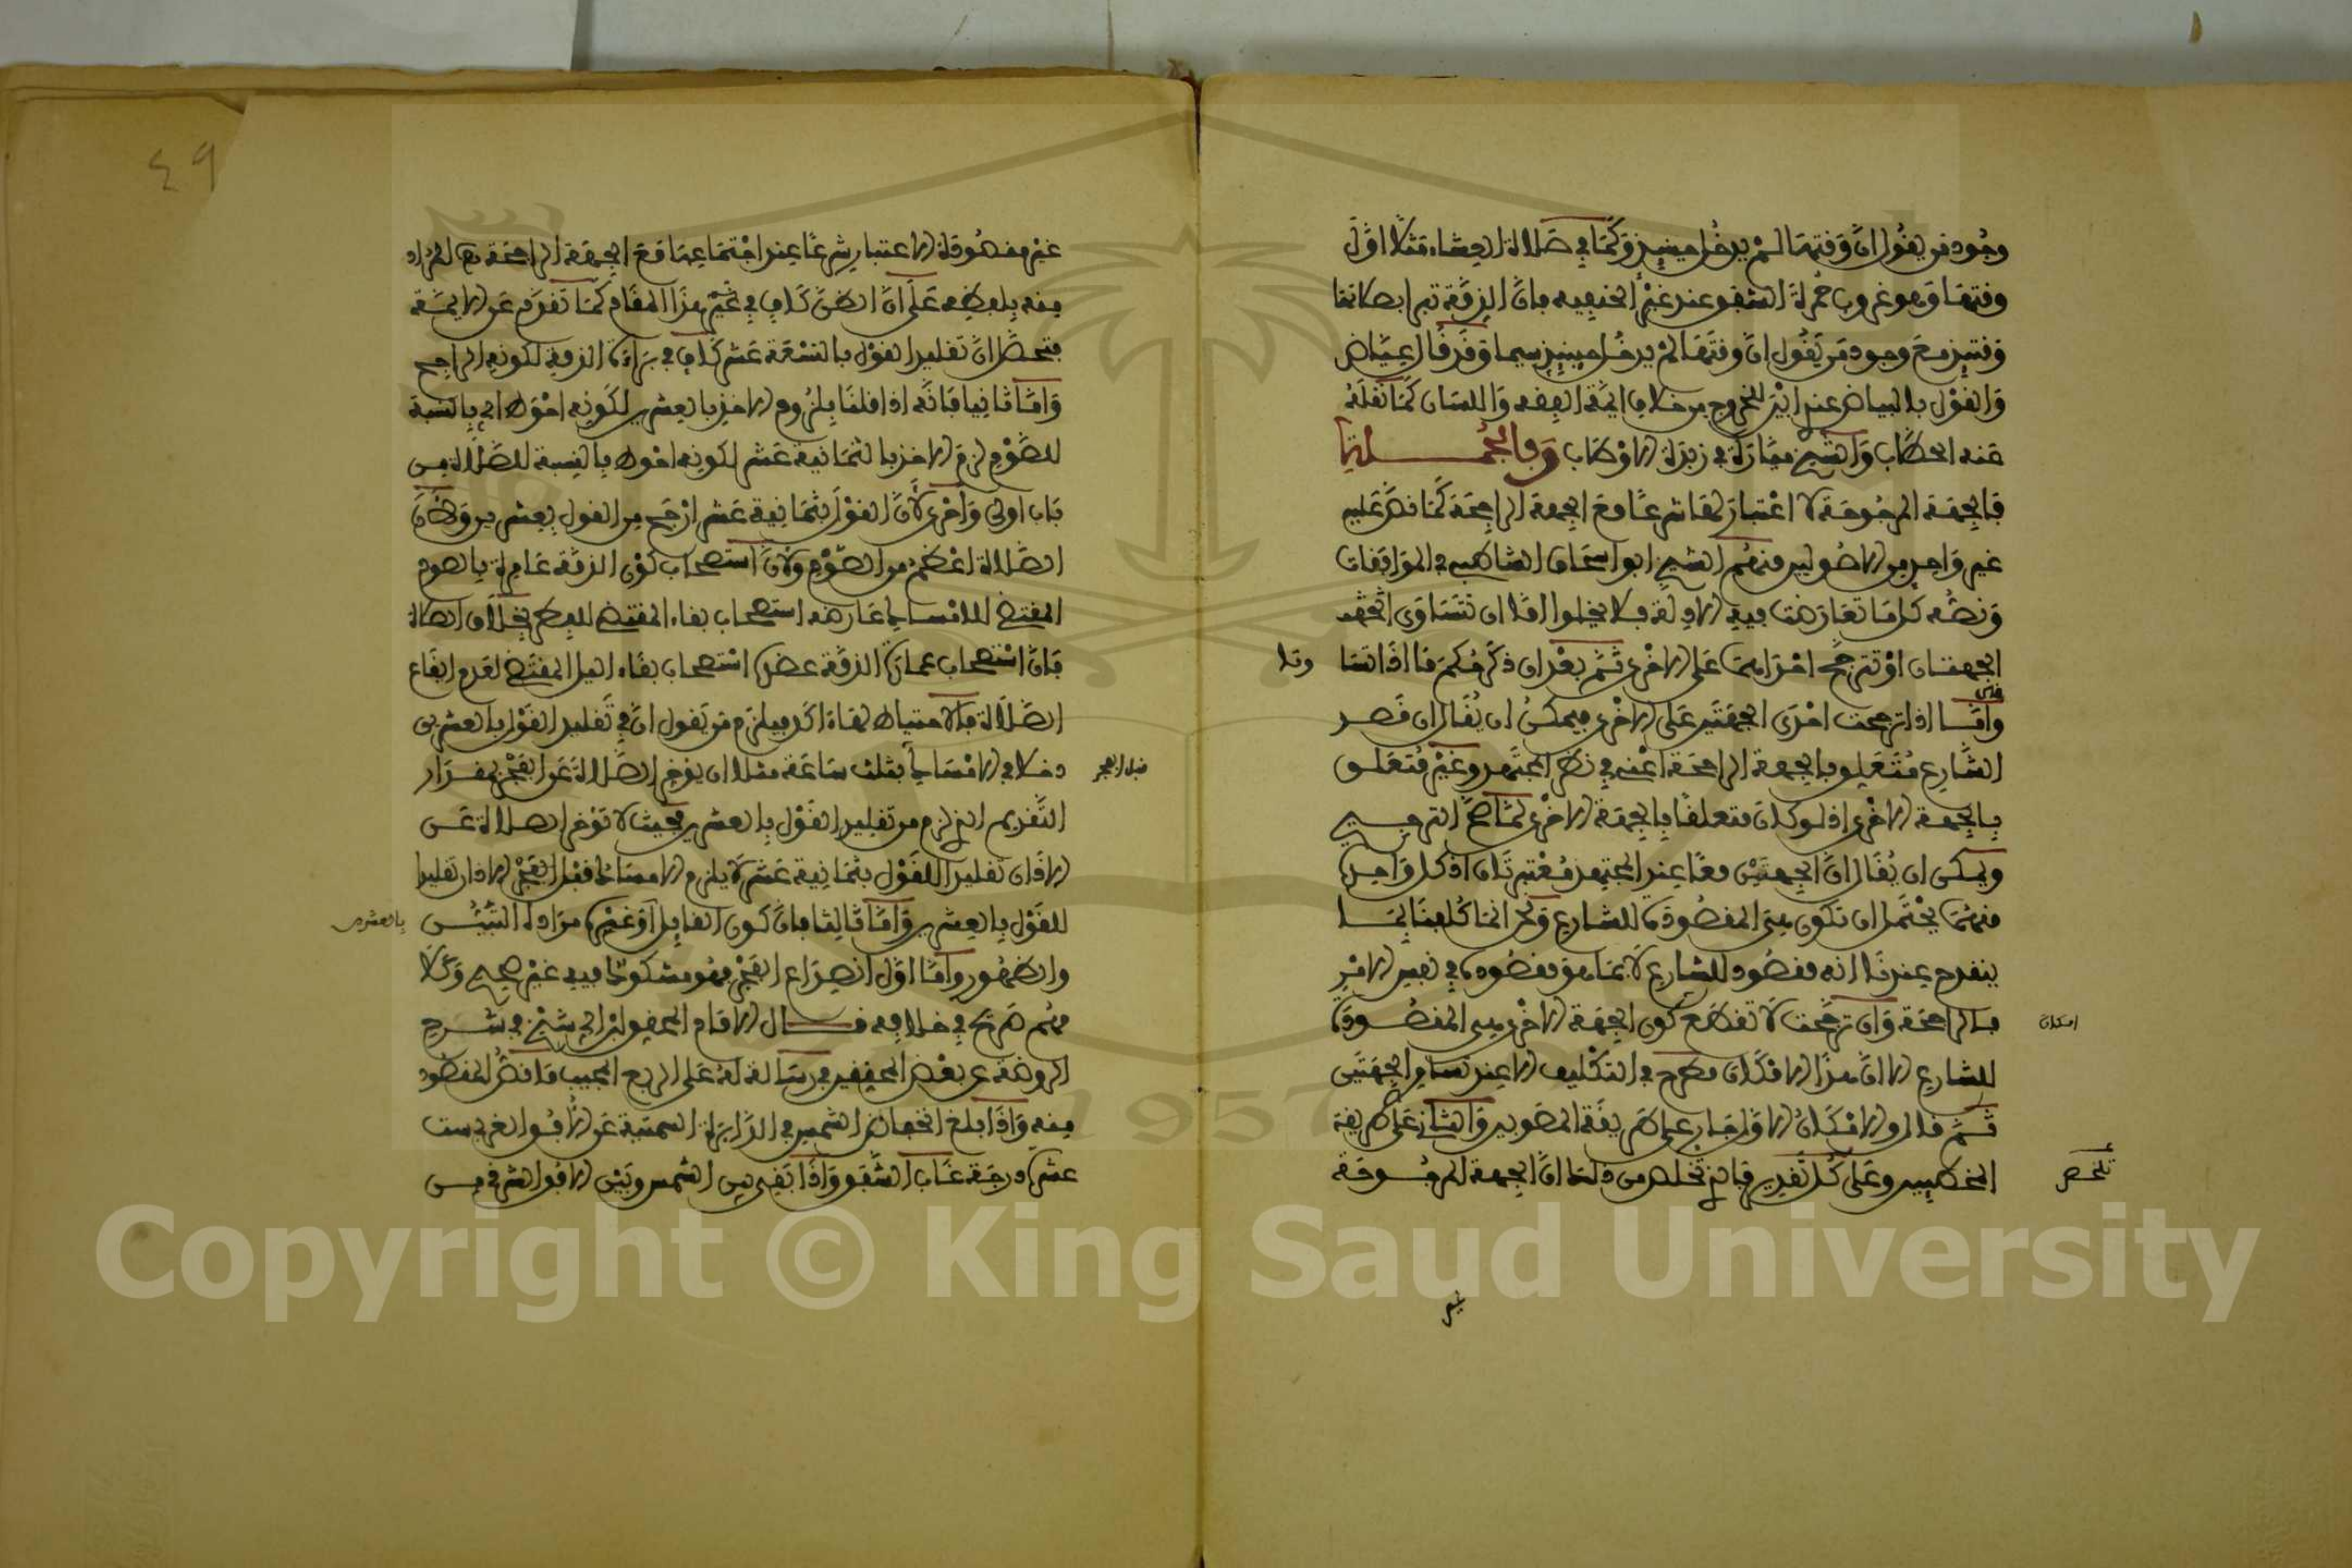 وجود من يقول ان وقتها لم يدخل حينئذ وكما في صلاة العشاء مثلا اول
وقتها وهو غروب حمرة الشفق عند غير الحنفية فان الذمة تبرا بصلاتها
وقتئذ مع وجود من يقول ان وقتها لم يدخل حينئذ سيما وقد قال عياض
والقول بالبياض عندي ابين للخروج من خلاف ايمة الفقه واللسان كما نقله
عنه الحطاب والشيخ ميارة في زبدة الاوطاب وبالجملة
فالجهة المرجوحة لا اعتبار لها شرعا مع الجهة الراجحة كما نص عليه
غير واحد من الاصوليين منهم الشيخ ابو اسحاق الشاطبي في الموافقات
ونصه كل ما تعارضت فيه الادلة فلا يخلوا اما ان تتساوى الجهتـ
الجهتان او تترجح احداهما على الاخرى ثم بعد ان ذكر حكم ما اذا تسا
واما اذا ترجحت احدى الجهتين على الاخرى فيمكن ان يقال ان قصد
الشارع متعلق بالجهة الراجحة اعني في نظر المجتهد وغير متعلق
بالجهة الاخرى اذ لو كان متعلقا بالجهة الاخرى لما صح الترجيح
ويمكن ان يقال ان الجهتين معا عند المجتهد معتبرتان اذ كل واحدة
منهما يحتمل ان تكون هي المقصودة للشارع ونحن انما كلفنا بما
ينقدح عندنا انه مقصود للشارع لا بما هو مقصوده في نفس الامر
فالراجحة وان ترجحت لا تقطع كون الجهة الاخرى هي المقصودة
امكان
للشارع الا ان هذا الامكان مطرح في التكليف الا عند تساوي الجهتين
ثم قال والامكان الاول جار على طريقة المصوبين والثاني على طريقة
المخطيين وعلى كل تقدير فالذي تخلص من ذلك ان الجهة المرجوحة
غير مقصودة الاعتبار شرعا عند اجتماعها مع الجهة الراجحة هـ المراد
منه بلفظه على ان الظن كاف في غير هذا المقام كما تقدم عن الايمة
فتحصل ان تقليد القول بالتسعة عشر كاف في براءة الذمة لكونه الراجح
واما ثانيا فانه اذا قلنا بلزوم الاخذ بالعشرين لكونه احوط اي بالنسبة
للصوم لزم الاخذ بالثمانية عشر لكونه احوط بالنسبة للصلاة من
باب اولى واحرى لان القول بثمانية عشر ارجح من القول بعشرين ولان
الصلاة اعظم من الصوم ولان استصحاب كون الذمة عامرة بالصوم
المقتضي للامساك عارضه استصحاب بقاء المقتضي للفطر بخلاف الصلاة
فان استصحاب عمارة الذمة عضده استصحاب بقاء الليل المقتضي لعدم ايقاع
الصلاة فالاحتياط لها اكد فيلزم من يقول ان في تقليد القول بالعشرين
دخلا في الامساك بثلث ساعة مثلا ان يؤخر الصلاة عن الفجر بمقدار
قبل الفجر
التقديم الذي لزم من تقليد القول بالعشرين بحيث لا تؤخر الصلاة عن
الاذان تقليدا للقول بثمانية عشر لا يلزم الامساك قبل الفجر الا ذا تقليد
للقول بالعشرين واما ثالثا فان كون القايل او غيره مراده التبين
بالعشرين
والظهور واما اول انصداع الفجر فهو مسكوت فيه غير صحيح وكلا
مهم صريح في خلافه قال الامام المحقق البرالي شيخ في شرح
الروضة عن بعض المحققين في رسالة له على الربع المجيب ما نص المقصود
منه واذا بلغ انخفاض الشمس في الدايرة السمتية عن الافق الغربي ست
عشرة درجة غاب الشفق واذا بقي بين الشمس وبين الافق الشرقي من